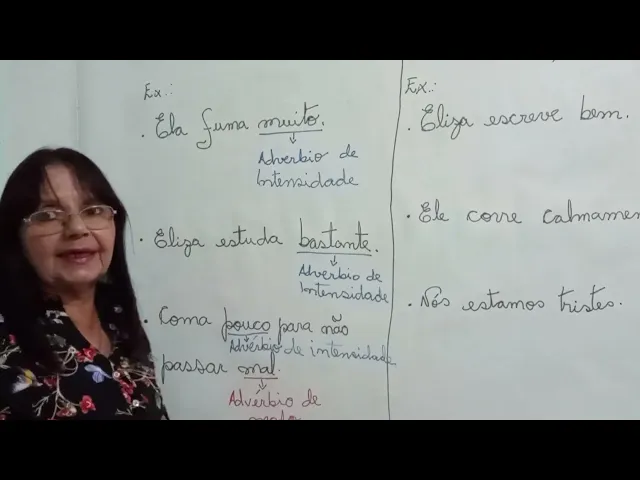 Ex.:
. Ela fuma muito.
Adverbio de
Intensidade
. Eliza estuda bastante.
Advérbio de
Intensidade
. Coma pouco para não
Advérbio de intensidade
passar mal.
Advérbio de
modo
Ex.:
. Eliza escreve bem.
. Ele corre calmamen
. Nós estamos tristes.